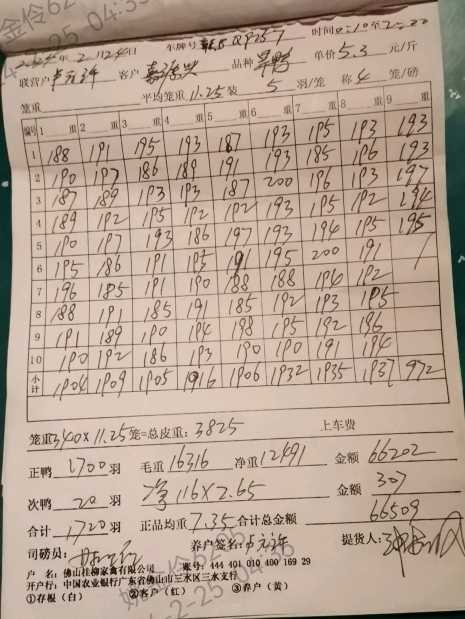 2024年2月24日 车牌号 QP257 时间0:10至2:20
联营户 卢元洋 客户 品种 旱鸭 单价5.3元/斤
笼重 平均笼重11.25装5羽/笼 称4笼/磅
编号 1 重 2 重 3 重 4 重 5 重 6 重 7 重 8 重 9 重
1 188 191 195 193 187 193 195 193 193
2 190 197 186 189 191 193 185 196 193
3 187 189 193 193 187 200 196 193 197
4 189 192 195 192 192 193 195 192 194
5 190 197 193 186 197 193 194 195 195
6 195 186 191 195 191 195 200 191
7 196 185 191 190 188 188 194 192
8 188 191 185 191 185 192 193 195
9 191 189 190 194 198 195 192 196
10 190 192 186 193 190 190 191 194
小计 1904 1909 1905 1916 1906 1932 1935 1937 972
笼重340×11.25笼=总皮重:3825 上车费
正鸭 1700 羽 毛重 16316 净重 12491 金额 66202
次鸭 20 羽 净116×2.65 金额 307
合计 1720 羽 正品均重 7.35 合计总金额 66509
司磅员: 养户签名:卢元洋 提货人:
户 名:佛山桂柳家禽有限公司 账号:444 401 010 400 169 29
开户行:中国农业银行广东省佛山市三水区三水支行
①存根(白) ②客户(红) ③养户(黄)